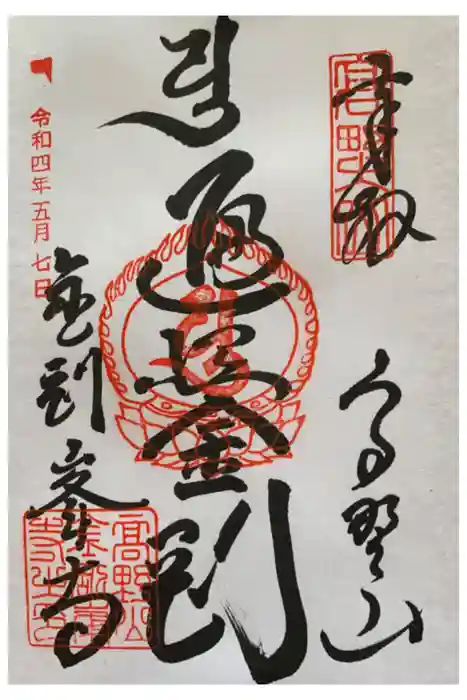 奉拝
高野山
高野山
遍照金剛
令和四年五月七日
金剛峯寺
高野山
金剛峯
寺之印